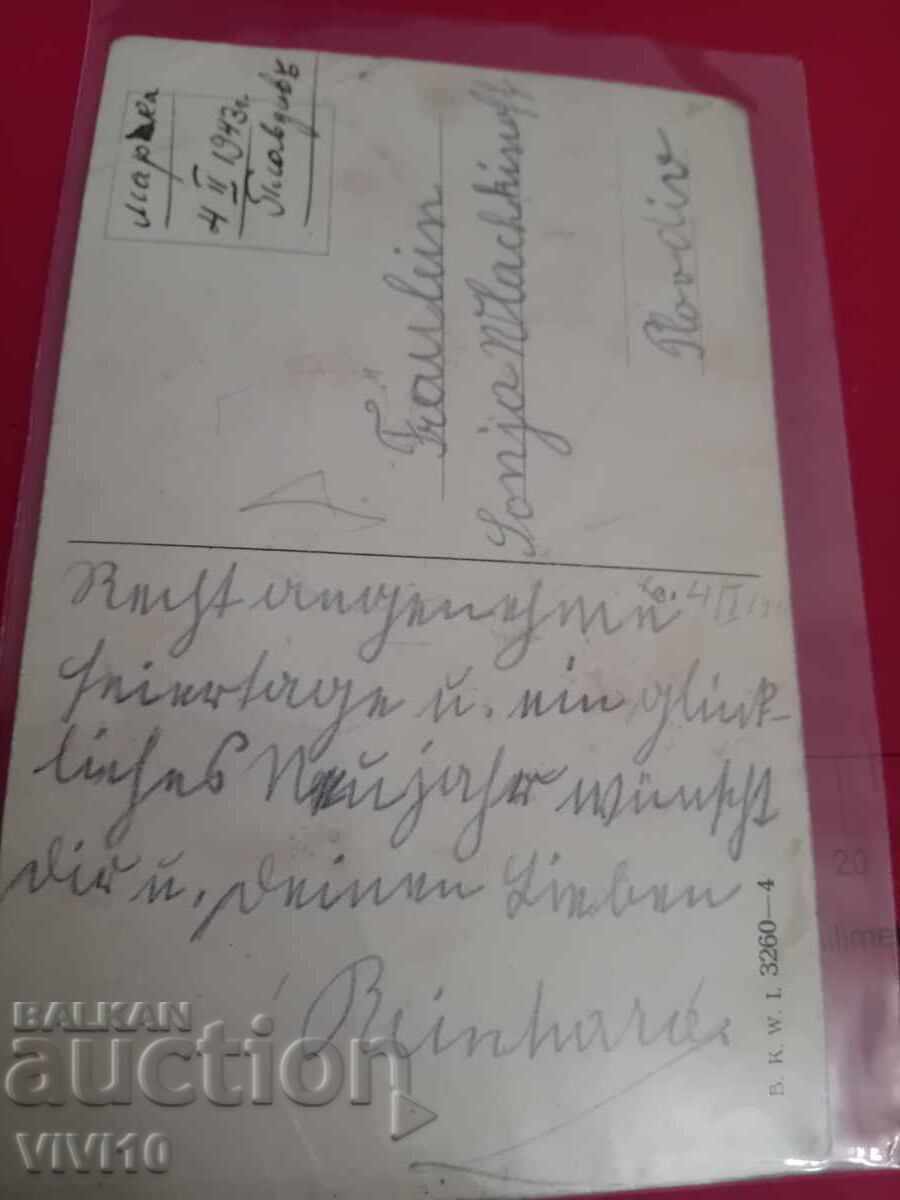 4 II 1943 г.
Пловдивъ
Fräulein
Sonja Wlachkinoff
Plovdiv
4/II
Recht angenehme
Feiertage u. ein glück-
liches Neujahr wünscht
Dir u. Deinen Lieben
Reinhard.
B. K. W. I. 3260—4
20
BALKAN
auction
VIVI10